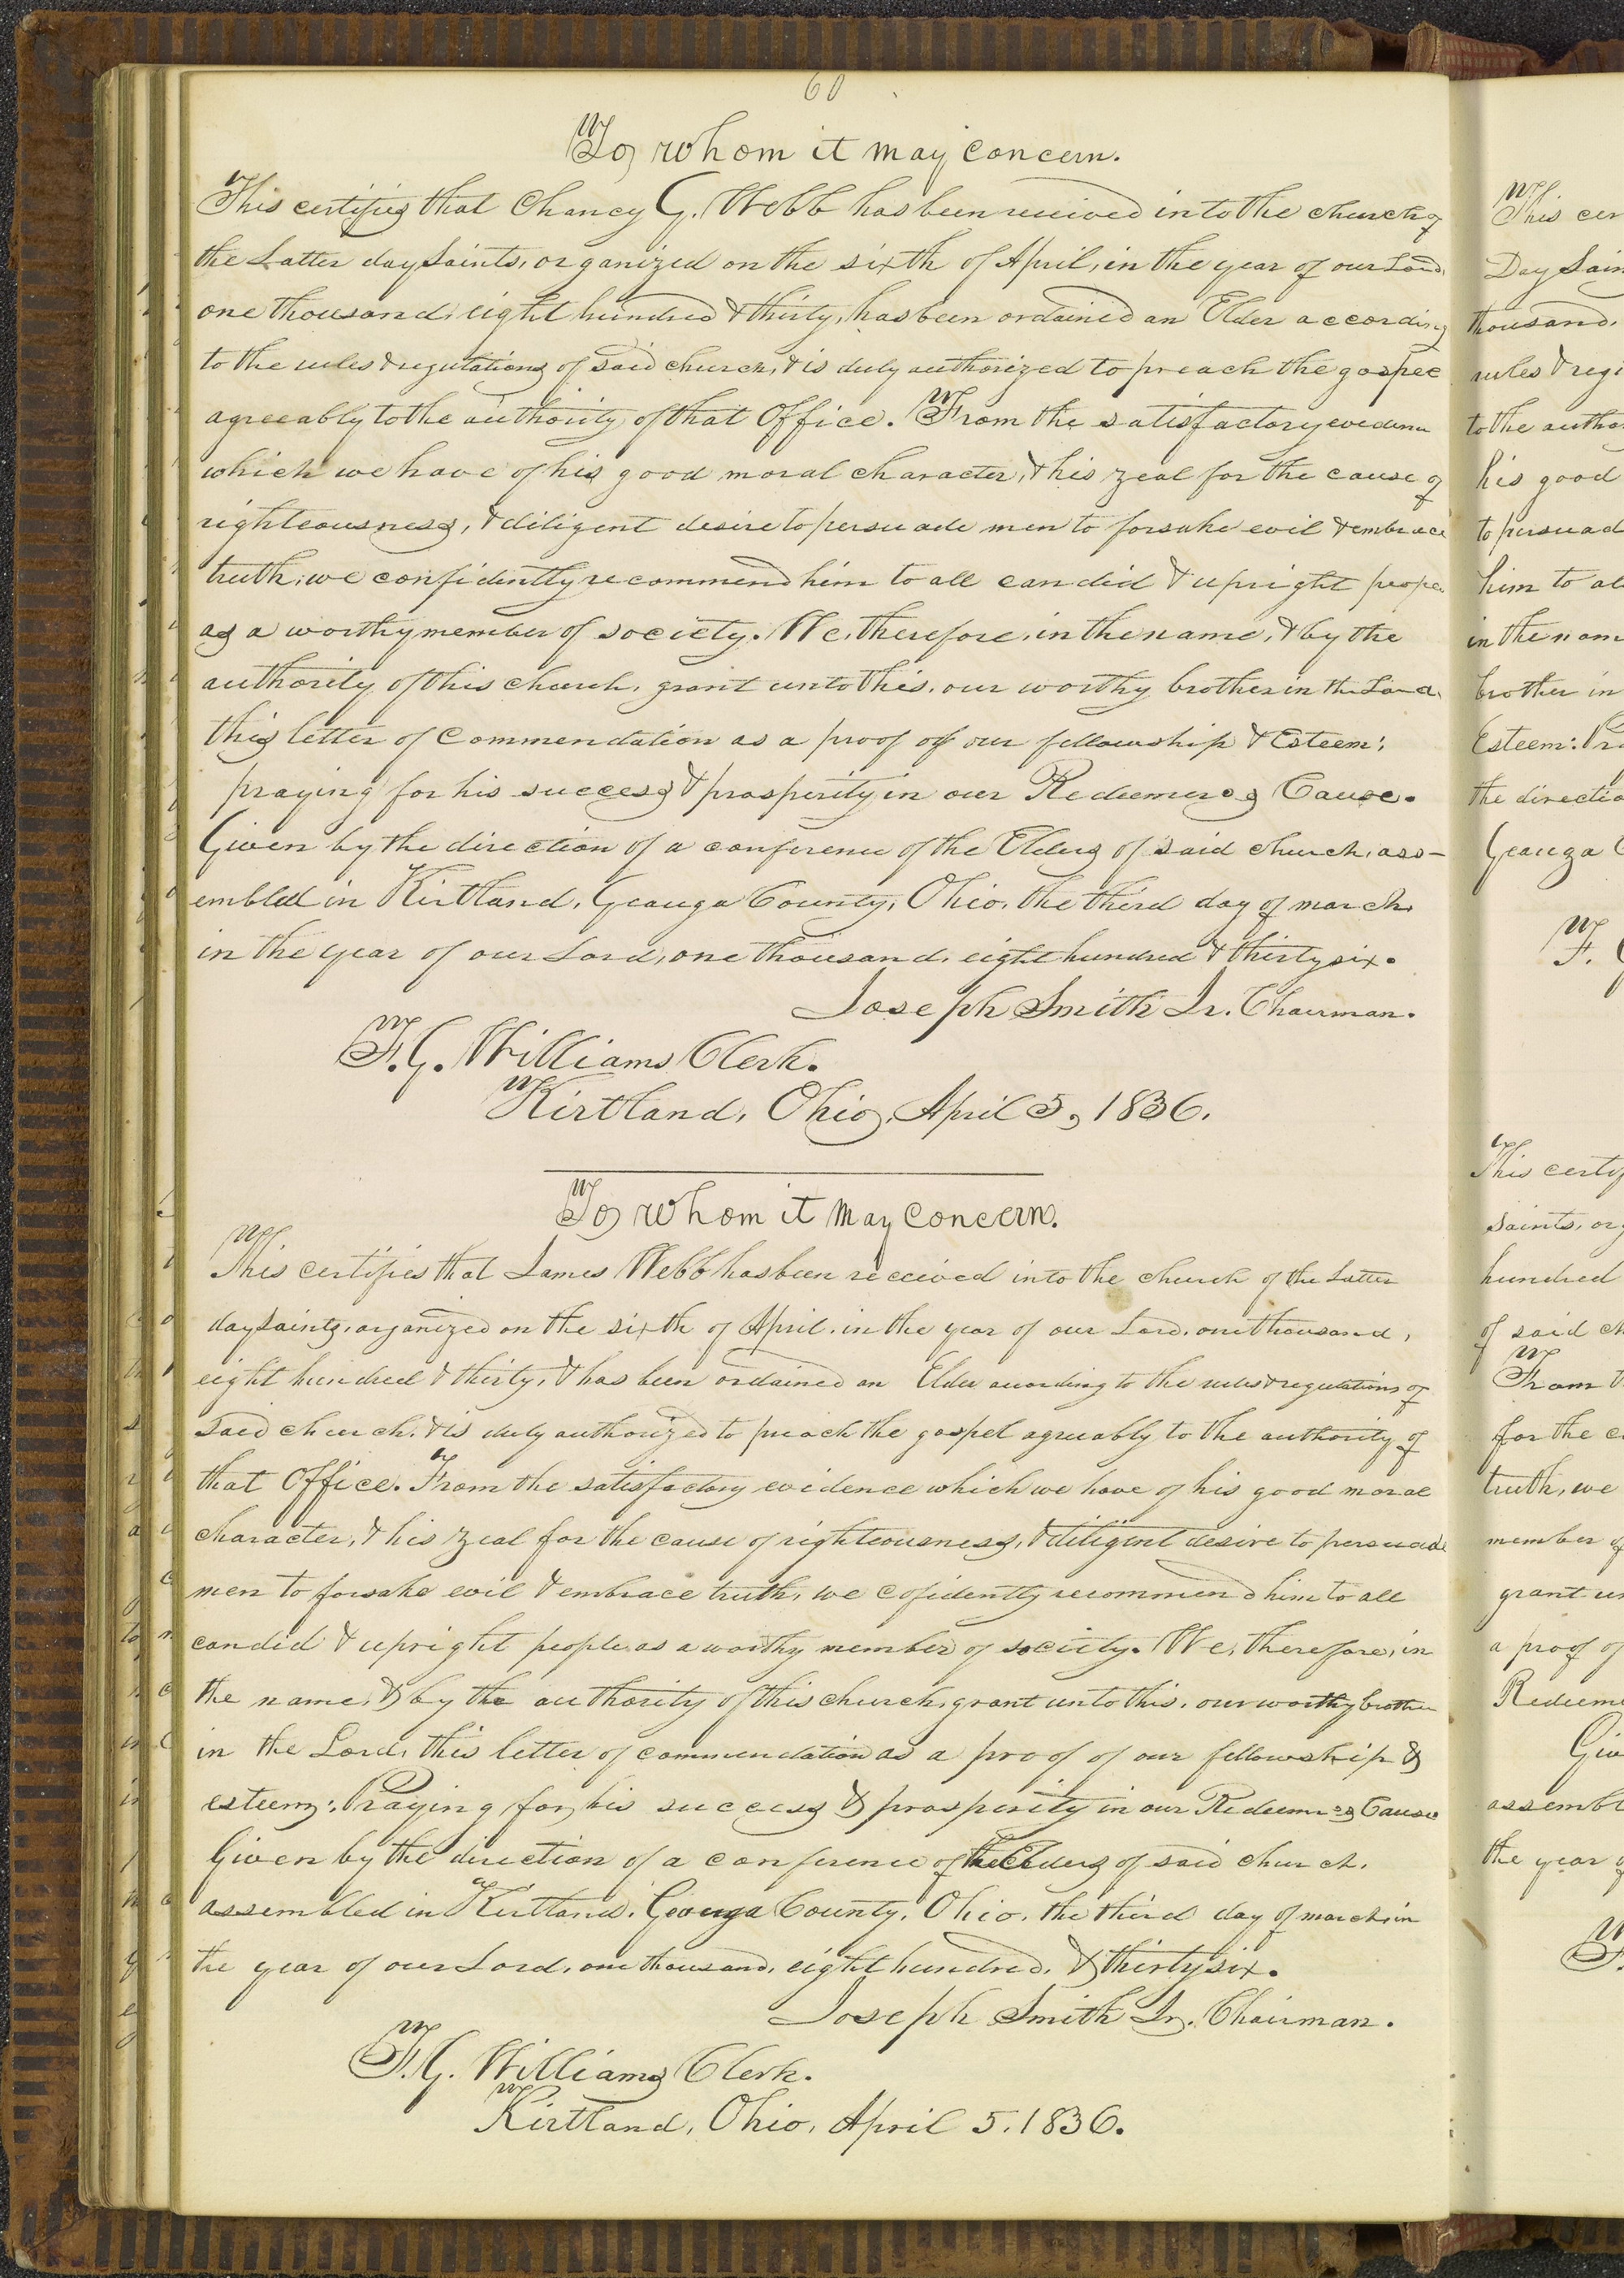 60
To whom it may concern.
This certifies that Chancy G. Webb has been received into the church of
the Latter day Saints, organized on the sixth of April, in the year of our Lord,
one thousand, eight hundred & thirty, has been ordained an Elder according
to the rules & regulations of said church, & is duly authorized to preach the gospel
agreeably to the authority of that Office. From the satisfactory evidence
which we have of his good moral character, & his zeal for the cause of
righteousness, & diligent desire to persuade men to forsake evil & embrace
truth, we confidently recommend him to all candid & upright people
as a worthy member of society. We, therefore, in the name, & by the
authority of this church, grant unto this, our worthy brother in the Lord,
this letter of Commendation as a proof of our fellowship & Esteem:
praying for his success & prosperity in our Redeemers Cause.
Given by the direction of a conference of the Elders of said church, ass-
embled in Kirtland, Geauga County, Ohio, the third day of march
in the year of our Lord, one thousand, eight hundred & thirty six.
Joseph Smith Jr. Chairman.
F. G. Williams Clerk.
Kirtland, Ohio, April 5, 1836.
To whom it may concern.
This certifies that James Webb has been received into the church of the Latter
day Saints, organized on the sixth of April, in the year of our Lord, one thousand,
eight hundred & thirty, & has been ordained an Elder according to the rules & regulations of
said church, & is duly authorized to preach the gospel agreeably to the authority of
that Office. From the satisfactory evidence which we have of his good moral
character, & his zeal for the cause of righteousness, & diligent desire to persuade
men to forsake evil & embrace truth, we cofidently recommend him to all
candid & upright people as a worthy member of society. We, therefore, in
the name, & by the authority of this church, grant unto this, our worthy brother
in the Lord, this letter of commendation as a proof of our fellowship &
esteem: Praying for his success & prosperity in our Redeemers Cause
Given by the direction of a conference of the Elders of said church,
assembled in Kirtland, Geauga County, Ohio, the third day of march in
the year of our Lord, one thousand, eight hundred, & thirty six.
Joseph Smith Jr. Chairman.
F. G. Williams Clerk.
Kirtland, Ohio, April 5, 1836.
This cer
Day Sain
thousand,
rules & reg
to the autho
his good
to persuad
him to al
in the nam
brother in
Esteem: Pr
the directio
Geauga C
F. G
This certif
Saints, org
hundred
of said ch
From t
for the c
truth, we
member of
grant un
a proof of
Redeeme
Giv
assembl
the year o
F.